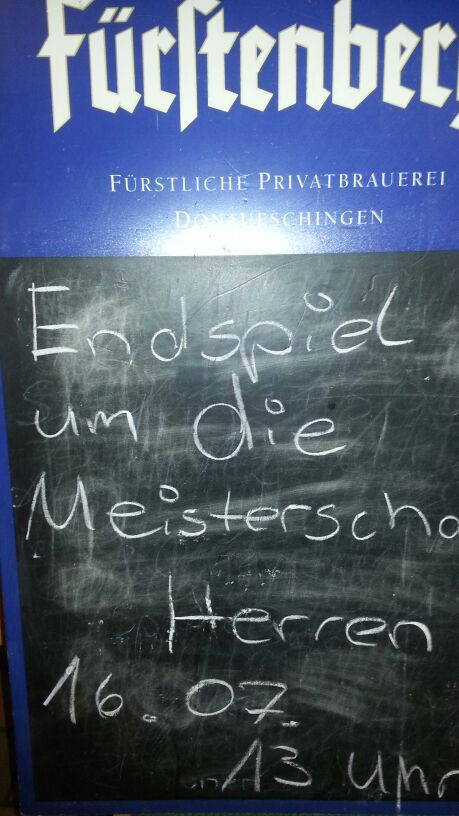 Fürstenberg
FÜRSTLICHE PRIVATBRAUEREI
DONAUESCHINGEN
Endspiel
um die
Meisterscha
Herren
16.07.
13 Uhr